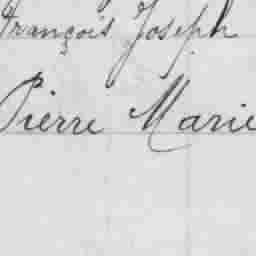 François Joseph
Pierre Marie